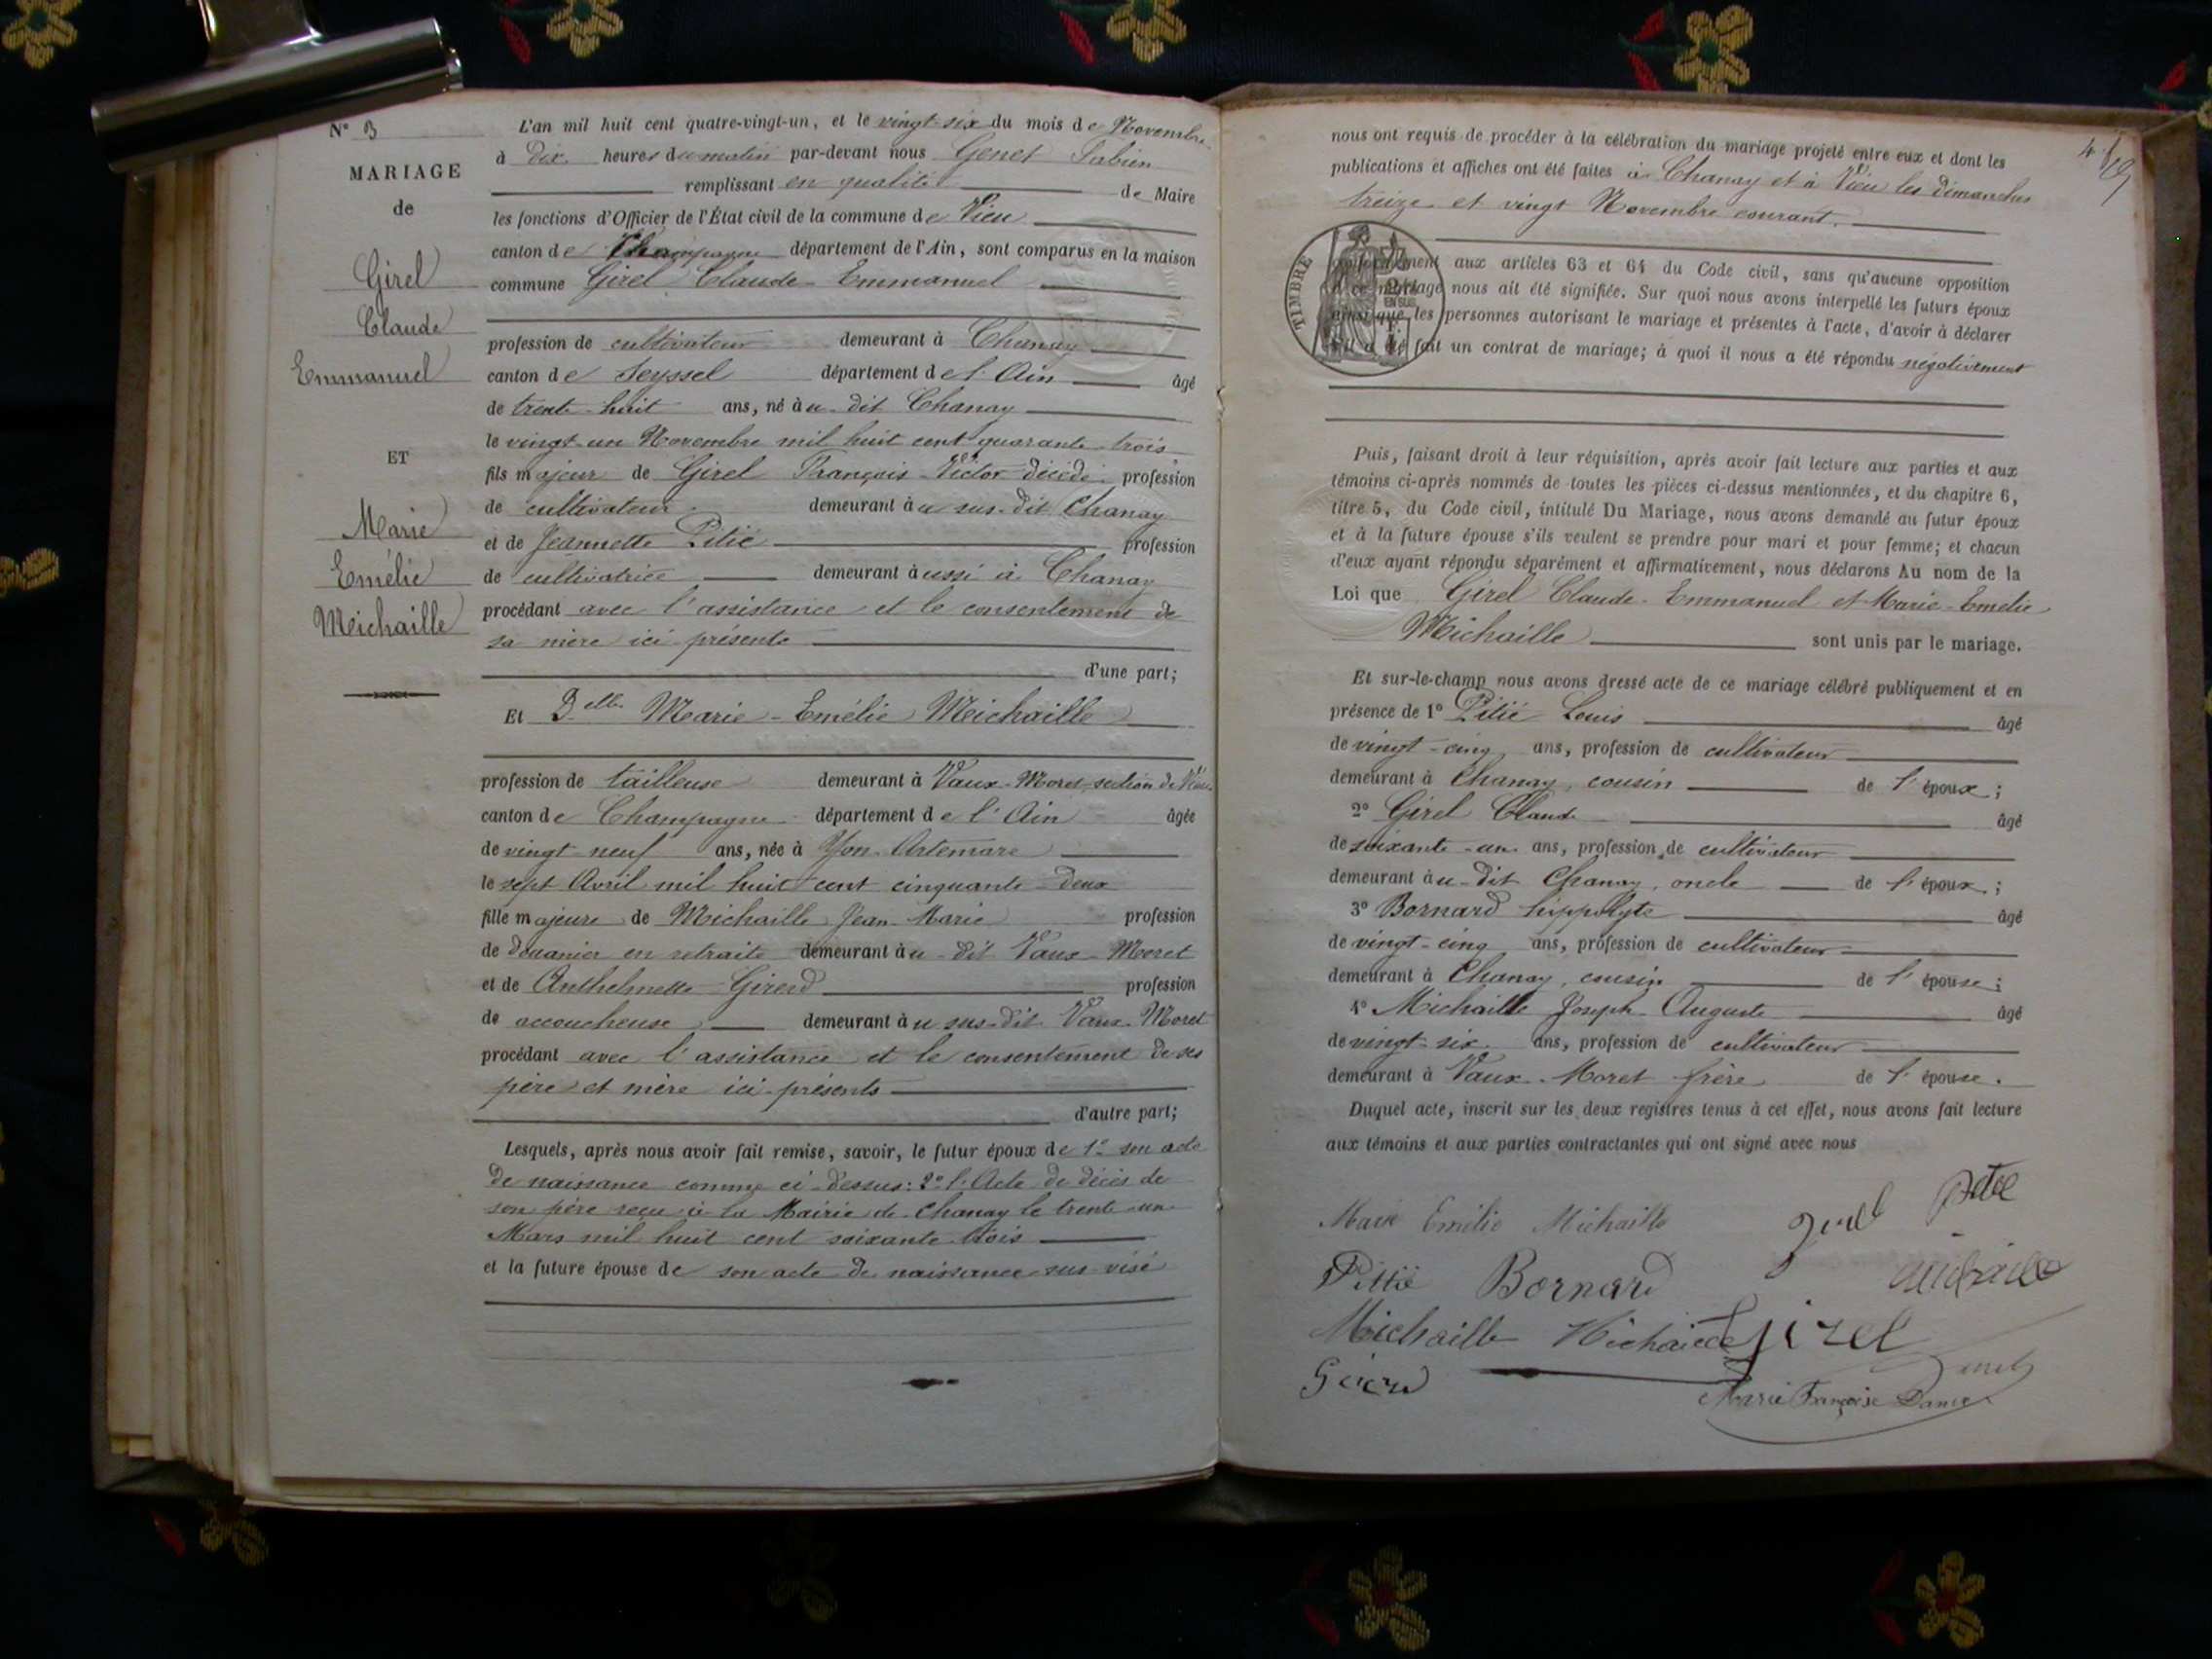 N° 3
MARIAGE
de
Girel
Claude
Emmanuel
ET
Marie
Emélie
Michaille
L'an mil huit cent quatre-vingt-un, et le vingt-six du mois de Novembre
à dix heures du matin par-devant nous Genet Fabien
remplissant en qualité de Maire
les fonctions d'Officier de l'État civil de la commune de Vieu
canton de Champagne département de l'Ain, sont comparus en la maison
commune Girel Claude-Emmanuel
profession de cultivateur demeurant à Chanay
canton de Seyssel département de l'Ain âgé
de trente-huit ans, né à u-dit Chanay
le vingt-un Novembre mil huit cent quarante-trois
fils majeur de Girel François-Victor décédé profession
de cultivateur demeurant à u sus-dit Chanay
et de Jeannette Pitié profession
de cultivatrice demeurant à ussi à Chanay
procédant avec l'assistance et le consentement de
sa mère ici présente
d'une part;
Et Delle Marie-Emélie Michaille
profession de tailleuse demeurant à Vaux-Moret, section de Vieu
canton de Champagne département de l'Ain âgée
de vingt-neuf ans, née à Yon-Artemare
le sept Avril mil huit cent cinquante-deux
fille majeure de Michaille Jean-Marie profession
de douanier en retraite demeurant à u-dit Vaux-Moret
et de Anthelmette Girerd profession
de accoucheuse demeurant à u sus-dit Vaux-Moret
procédant avec l'assistance et le consentement de ses
père et mère ici présents
d'autre part;
Lesquels, après nous avoir fait remise, savoir, le futur époux de 1° son acte
de naissance comme ci-dessus: 2° l'Acte de décès de
son père reçu à la Mairie de Chanay le trente-un
Mars mil huit cent soixante-trois
et la future épouse de son acte de naissance sus-visé
nous ont requis de procéder à la célébration du mariage projeté entre eux et dont les
publications et affiches ont été faites à Chanay et à Vieu les dimanches
treize et vingt Novembre courant.
TIMBRE
conformément aux articles 63 et 64 du Code civil, sans qu'aucune opposition
à ce mariage nous ait été signifiée. Sur quoi nous avons interpellé les futurs époux
ainsi que les personnes autorisant le mariage et présentes à l'acte, d'avoir à déclarer
s'il a été fait un contrat de mariage; à quoi il nous a été répondu négativement
Puis, faisant droit à leur réquisition, après avoir fait lecture aux parties et aux
témoins ci-après nommés de toutes les pièces ci-dessus mentionnées, et du chapitre 6,
titre 5, du Code civil, intitulé Du Mariage, nous avons demandé au futur époux
et à la future épouse s'ils veulent se prendre pour mari et pour femme; et chacun
d'eux ayant répondu séparément et affirmativement, nous déclarons Au nom de la
Loi que Girel Claude-Emmanuel et Marie-Emelie
Michaille sont unis par le mariage.
Et sur-le-champ nous avons dressé acte de ce mariage célébré publiquement et en
présence de 1° Pitié Louis âgé
de vingt-cinq ans, profession de cultivateur
demeurant à Chanay, cousin de l'époux;
2° Girel Claude âgé
de soixante-un ans, profession de cultivateur
demeurant à u-dit Chanay, oncle de l'époux;
3° Bornard hippolyte âgé
de vingt-cinq ans, profession de cultivateur
demeurant à Chanay, cousin de l'épouse;
4° Michaille Joseph-Auguste âgé
de vingt-six ans, profession de cultivateur
demeurant à Vaux-Moret frère de l'épouse.
Duquel acte, inscrit sur les deux registres tenus à cet effet, nous avons fait lecture
aux témoins et aux parties contractantes qui ont signé avec nous
Marie Emilie Michaille Girel Pitié
Pittié Bornard Michaille
Michaille Michaille Girel
Girerd Genet
Marie Françoise